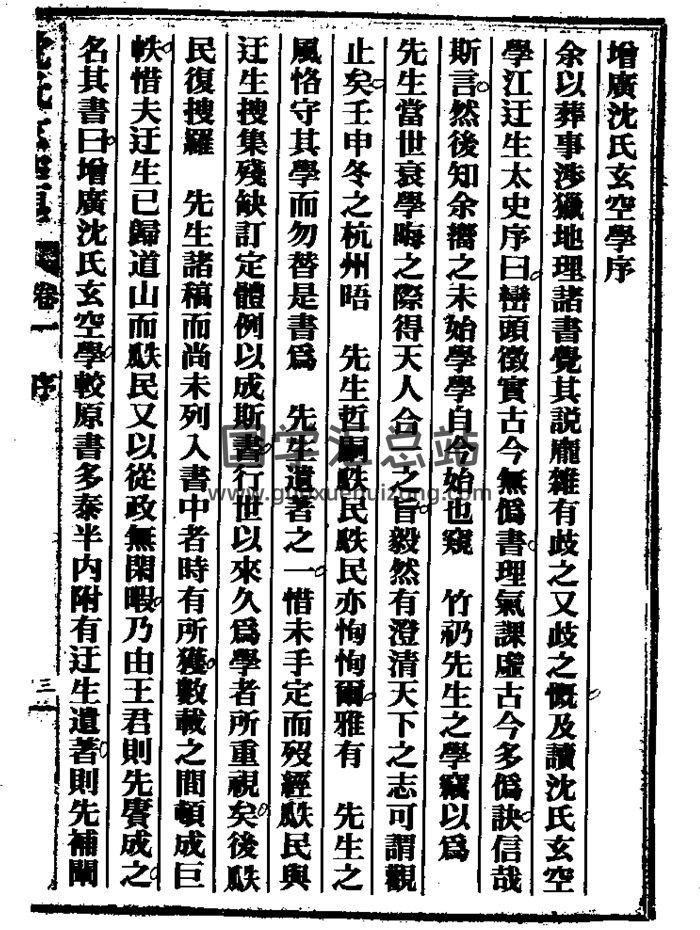 增廣沈氏玄空學序
余以葬事涉獵地理諸書覺其説龐雜有歧之又歧之慨及讀沈氏玄空
學江迂生太史序曰巒頭徵實古今無僞書理氣課虛古今多僞訣信哉
斯言然後知余嚮之未始學學自今始也窺　竹礽先生之學竊以爲
先生當世衰學晦之際得天人合一之旨毅然有澄清天下之志可謂觀
止矣壬申冬之杭州晤　先生哲嗣瓞民瓞民亦恂恂爾雅有　先生之
風恪守其學而勿替是書爲　先生遺著之一惜未手定而歿經瓞民與
迂生搜集殘缺訂定體例以成斯書行世以來久爲學者所重視矣後瓞
民復搜羅　先生諸稿而尚未列入書中者時有所獲數載之間頓成巨
帙惜夫迂生已歸道山而瓞民又以從政無閑暇乃由王君則先賡成之
名其書曰增廣沈氏玄空學較原書多泰半内附有迂生遺著則先補闡
卷一　序
三
国学汇总站
www.guoxuehuizong.com